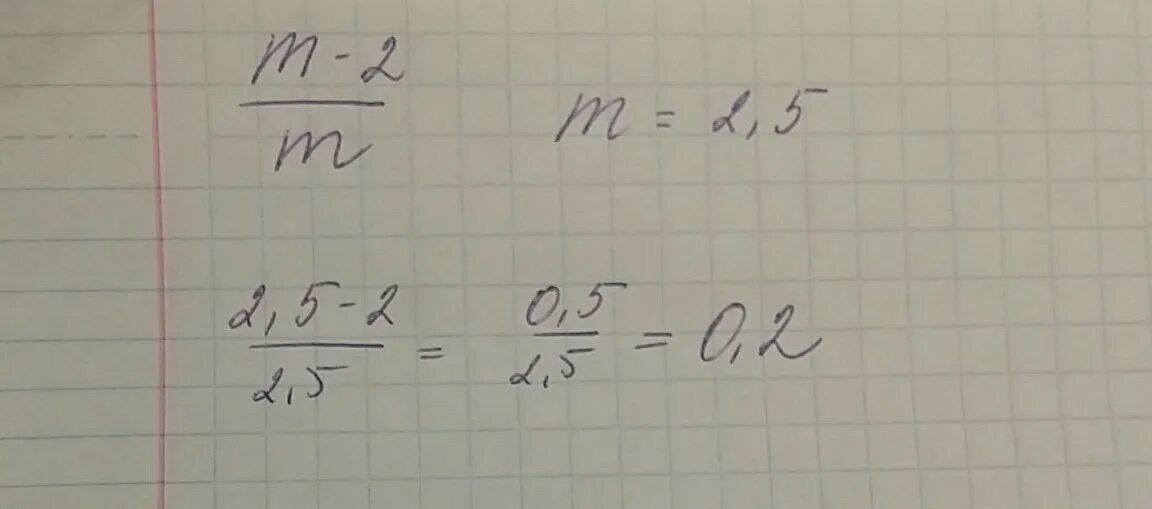 m-2
m
m = 2,5
2,5-2
2,5
=
0,5
2,5
= 0,2